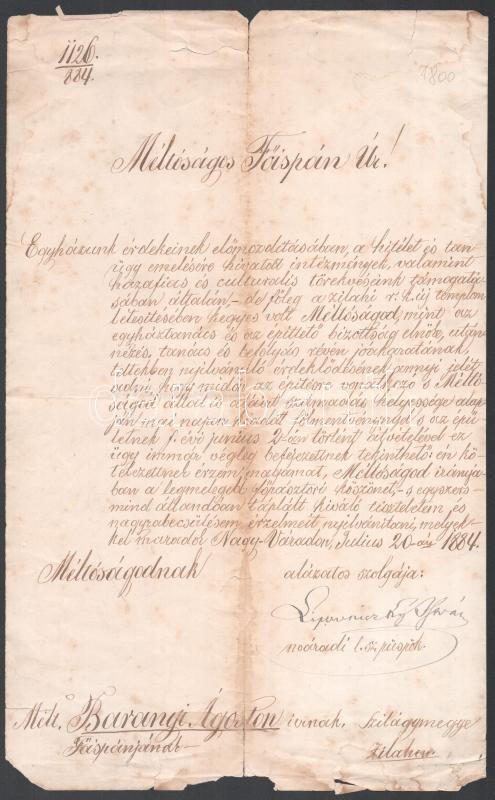 1126.
884.
Méltóságos Főispán Úr!
Egyházunk érdekeinek előmozdításában, a hitélet és tan-
ügy emelésére hivatott intézmények, valamint
hazafias és culturalis törekvéseink támogatá-
sában általán, – de főleg a zilahi r. k. új templom
létesítésében kegyes volt Méltóságod, mint az
egyháztanács és az építtető bizottság elnöke, után-
nézés, tanács és befolyás révén jóakaratának,
tettekben nyilvánuló érdeklődésének annyi jelét
adni, hogy midőn az építésre vonatkozó s Méltó-
ságod által is aláirt számadás helyessége alap-
ján mai napon kiadott fölmentvénynyel s az épü-
letnek f. évi junius 2-án történt átvételével ez
ügy immár végleg befejezettnek tekinthető: én kö-
telezettnek érzem magamat, Méltóságod irányá-
ban a legmelegebb főpásztori köszönet, – s egyszers-
mind állandóan táplált kiváló tiszteletem és
nagyrabecsülésem érzelmeit nyilvánítani, melyek-
kel maradok Nagy-Váradon, Julius 20-án 1884.
Méltóságodnak
alázatos szolgája:
Lipovniczky István
nváradi l. sz. püspök.
Mélt. Barangi Ágoston úrnak, Szilágymegye
Főispánjának
Zilahon.